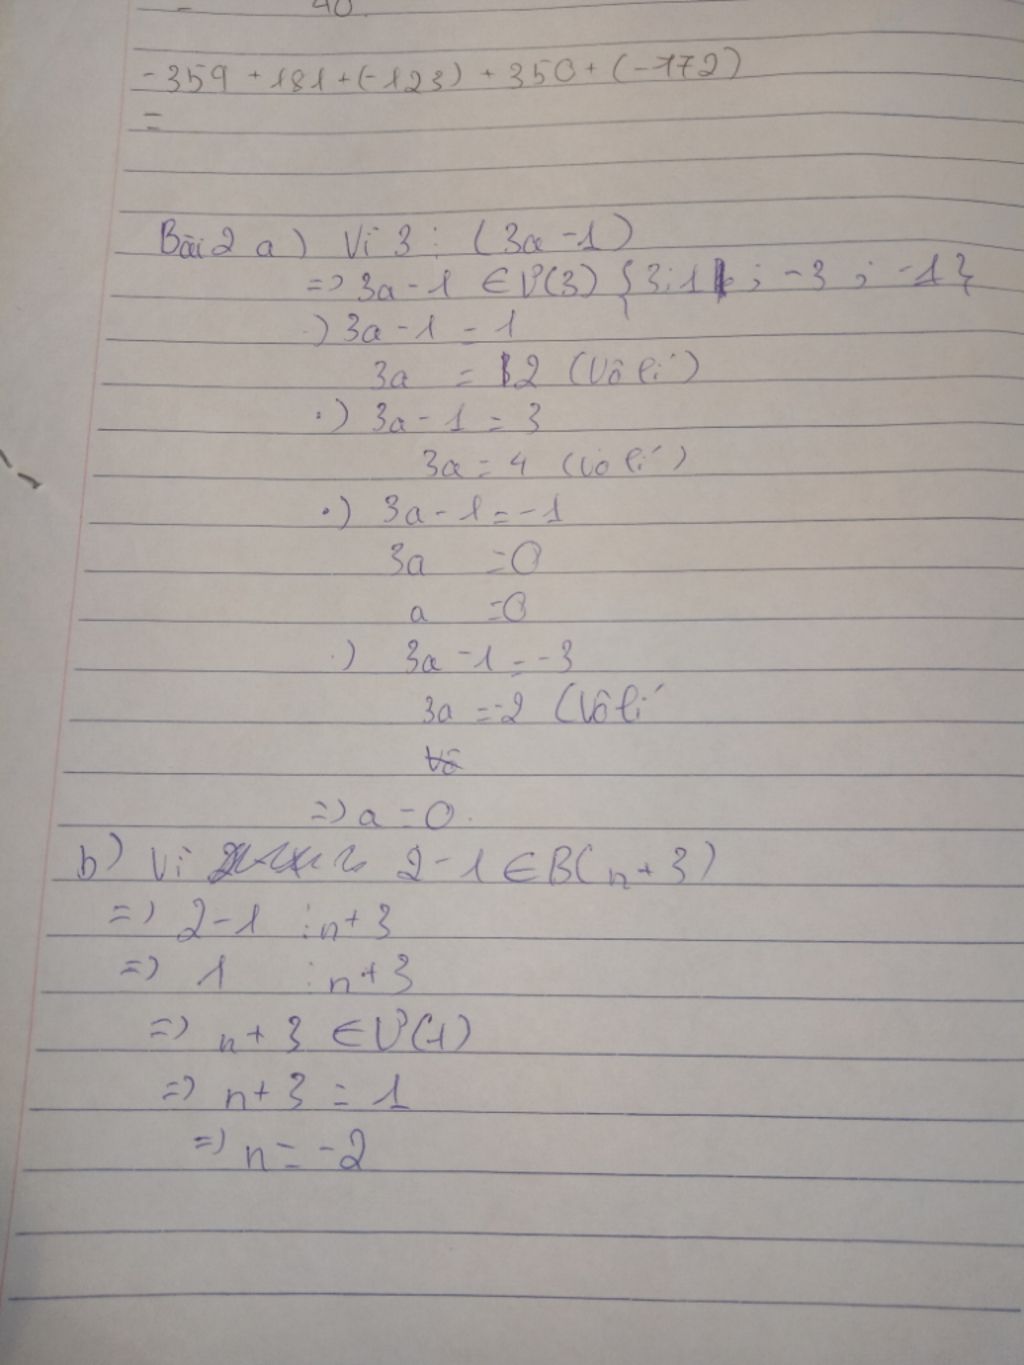 = 40.
-359 + 181 + (-123) + 350 + (-172)
=
Bài 2 a) Vì 3 ⋮ (3a - 1)
=> 3a - 1 ∈ Ư(3) {3; 1 ; -3 ; -1}
.) 3a - 1 = 1
3a = 2 (Vô lí)
.) 3a - 1 = 3
3a = 4 (Vô lí)
.) 3a - 1 = -1
3a = 0
a = 0
.) 3a - 1 = -3
3a = -2 (Vô lí
Vô
=> a = 0.
b) Vì 2 - 1 ∈ B(n + 3)
=> 2 - 1 ⋮ n + 3
=> 1 ⋮ n + 3
=> n + 3 ∈ Ư(1)
=> n + 3 = 1
=> n = -2